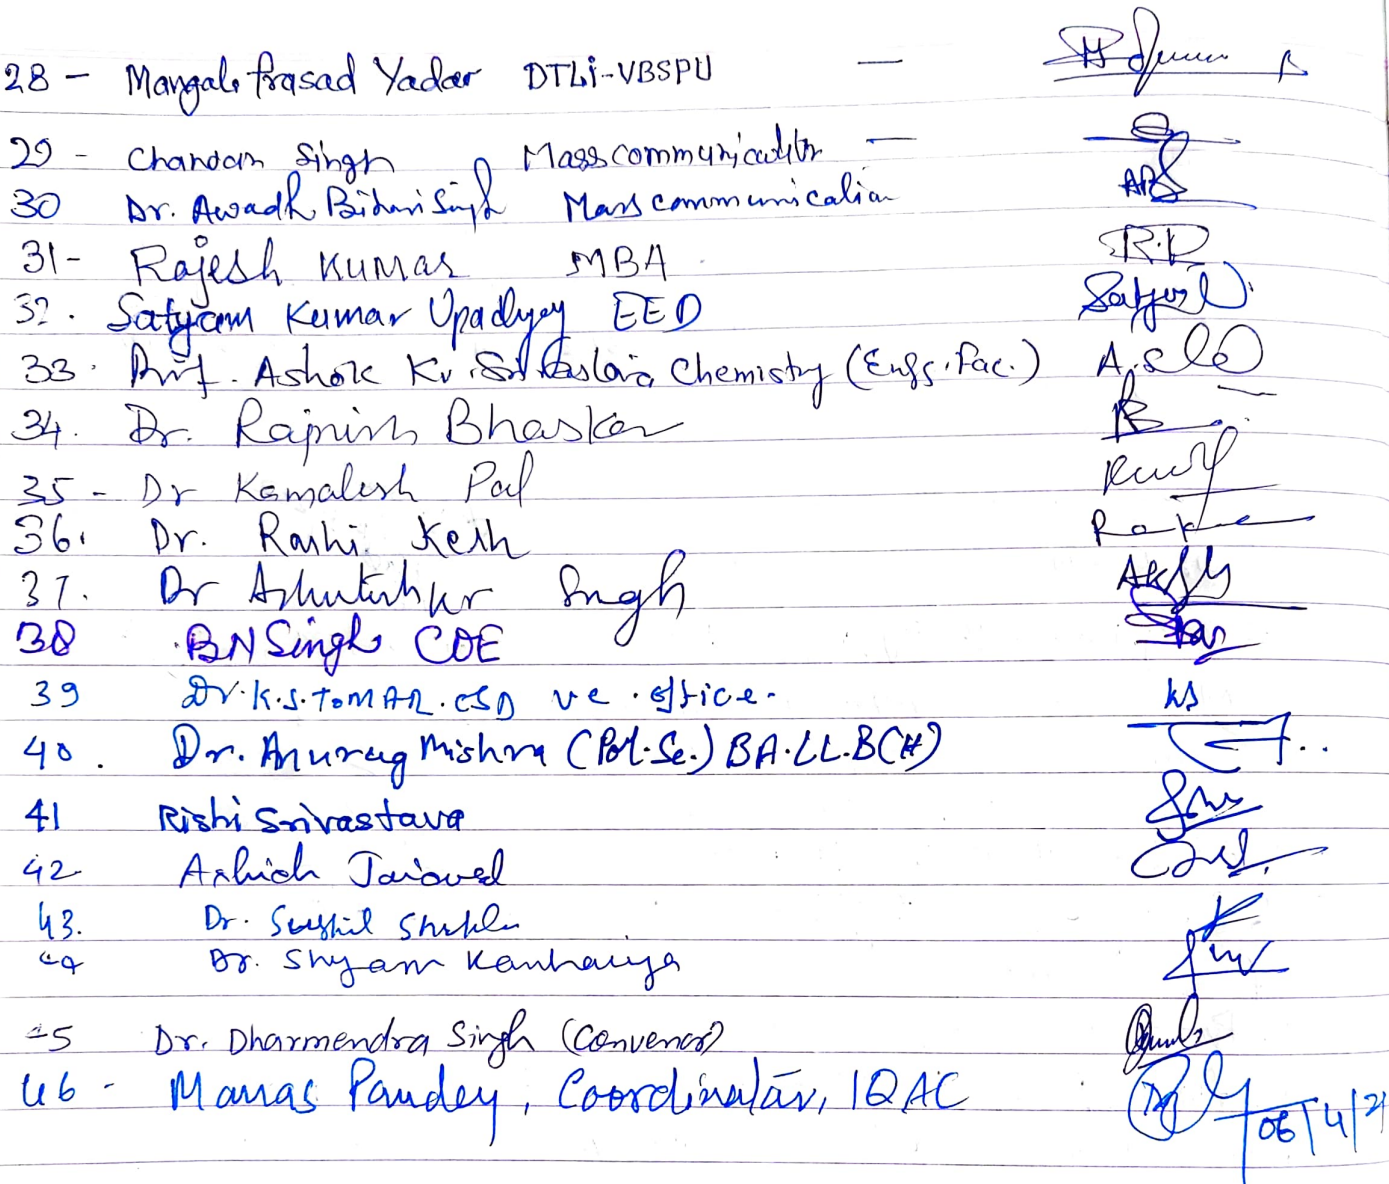 28 - Mangala Prasad Yadav DTLi-VBSPU —
29 - Chandan Singh Mass communication —
30 Dr. Awadh Bihari Singh Mass communication ABS
31- Rajesh Kumar MBA R.K
32. Satyam Kumar Upadhyay EED
33. Prof. Ashok Kr. Srivastava Chemistry (Engg. Fac.)
34. Dr. Rajnish Bhaskar
35 - Dr Kamalesh Pal
36. Dr. Rashi Kesh
37. Dr Ashutosh Kr Singh
38 BN Singh COE
39 Dr. K.S. TOMAR. OSD VC. Office. KS
40. Dr. Anurag Mishra (Pol. Sc.) BA.LL.B(H)
41 Rishi Srivastava
42 Ashish Jaiswal
43. Dr. Sushil Shukla
44 Dr. Shyam Kanhaiya
45 Dr. Dharmendra Singh (Convenor)
46 - Manas Pandey, Coordinator, IQAC 06/4/21